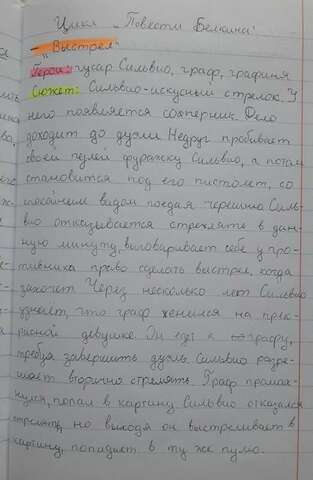 Цикл „Повести Белкина"
- „Выстрел"
Герои: гусар Сильвио, граф, графиня
Сюжет: Сильвио-искусный стрелок. У
него появляется соперник. Дело
доходит до дуэли Недруг пробивает
своей пулей фуражку Сильвио, а потом
становится под его пистолет, со
спокойным видом поедая черешню Силь-
вио отказывается стрелять в дан-
ную минуту, выговаривает себе у про-
тивника право сделать выстрел, когда
захочет Через несколько лет Сильвио
узнаёт, что граф женился на прек-
расной девушке. Он едет к графу,
требуя завершить дуэль Сильвио разре-
шает вторично стрелять. Граф промах-
нулся, попал в картину Сильвио отказался
стрелять, но выходя он выстреливает в
картину, попадает в ту же пулю.